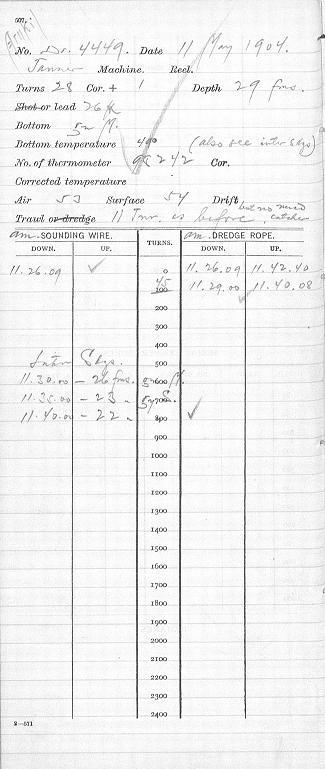 No. Dr. 4449. Date 11 May 1904.
Tanner Machine. Reel.
Turns 28 Cor. + 1 Depth 29 fms.
Shot or lead 26 #
Bottom
Bottom temperature (also see inter Sdgs)
No. of thermometer 98242 Cor.
Corrected temperature
Air 53 Surface 54 Drift
Trawl or dredge 11 Tnr. as before, but no mud catcher
am. SOUNDING WIRE. TURNS. am. DREDGE ROPE.
DOWN. UP. DOWN. UP.
11.26.09 0 11.26.09 11.42.40
45
100 11.29.00 11.40.08
200
300
400
500
Inter Sdgs.
11.30.00 - 26 fms. 600
11.35.00 - 23 " 700
11.40.00 - 22 " 800
900
1000
1100
1200
1300
1400
1500
1600
1700
1800
1900
2000
2100
2200
2300
2400
2—571